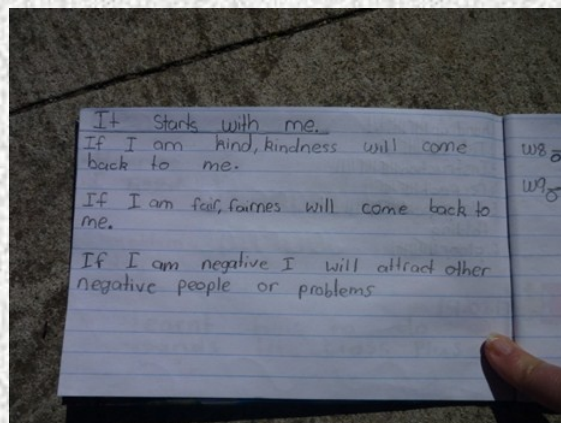 It starts with me.
If I am kind, kindness will come
back to me.
If I am fair, fairnes will come back to
me.
If I am negative I will attract other
negative people or problems
w8
w9